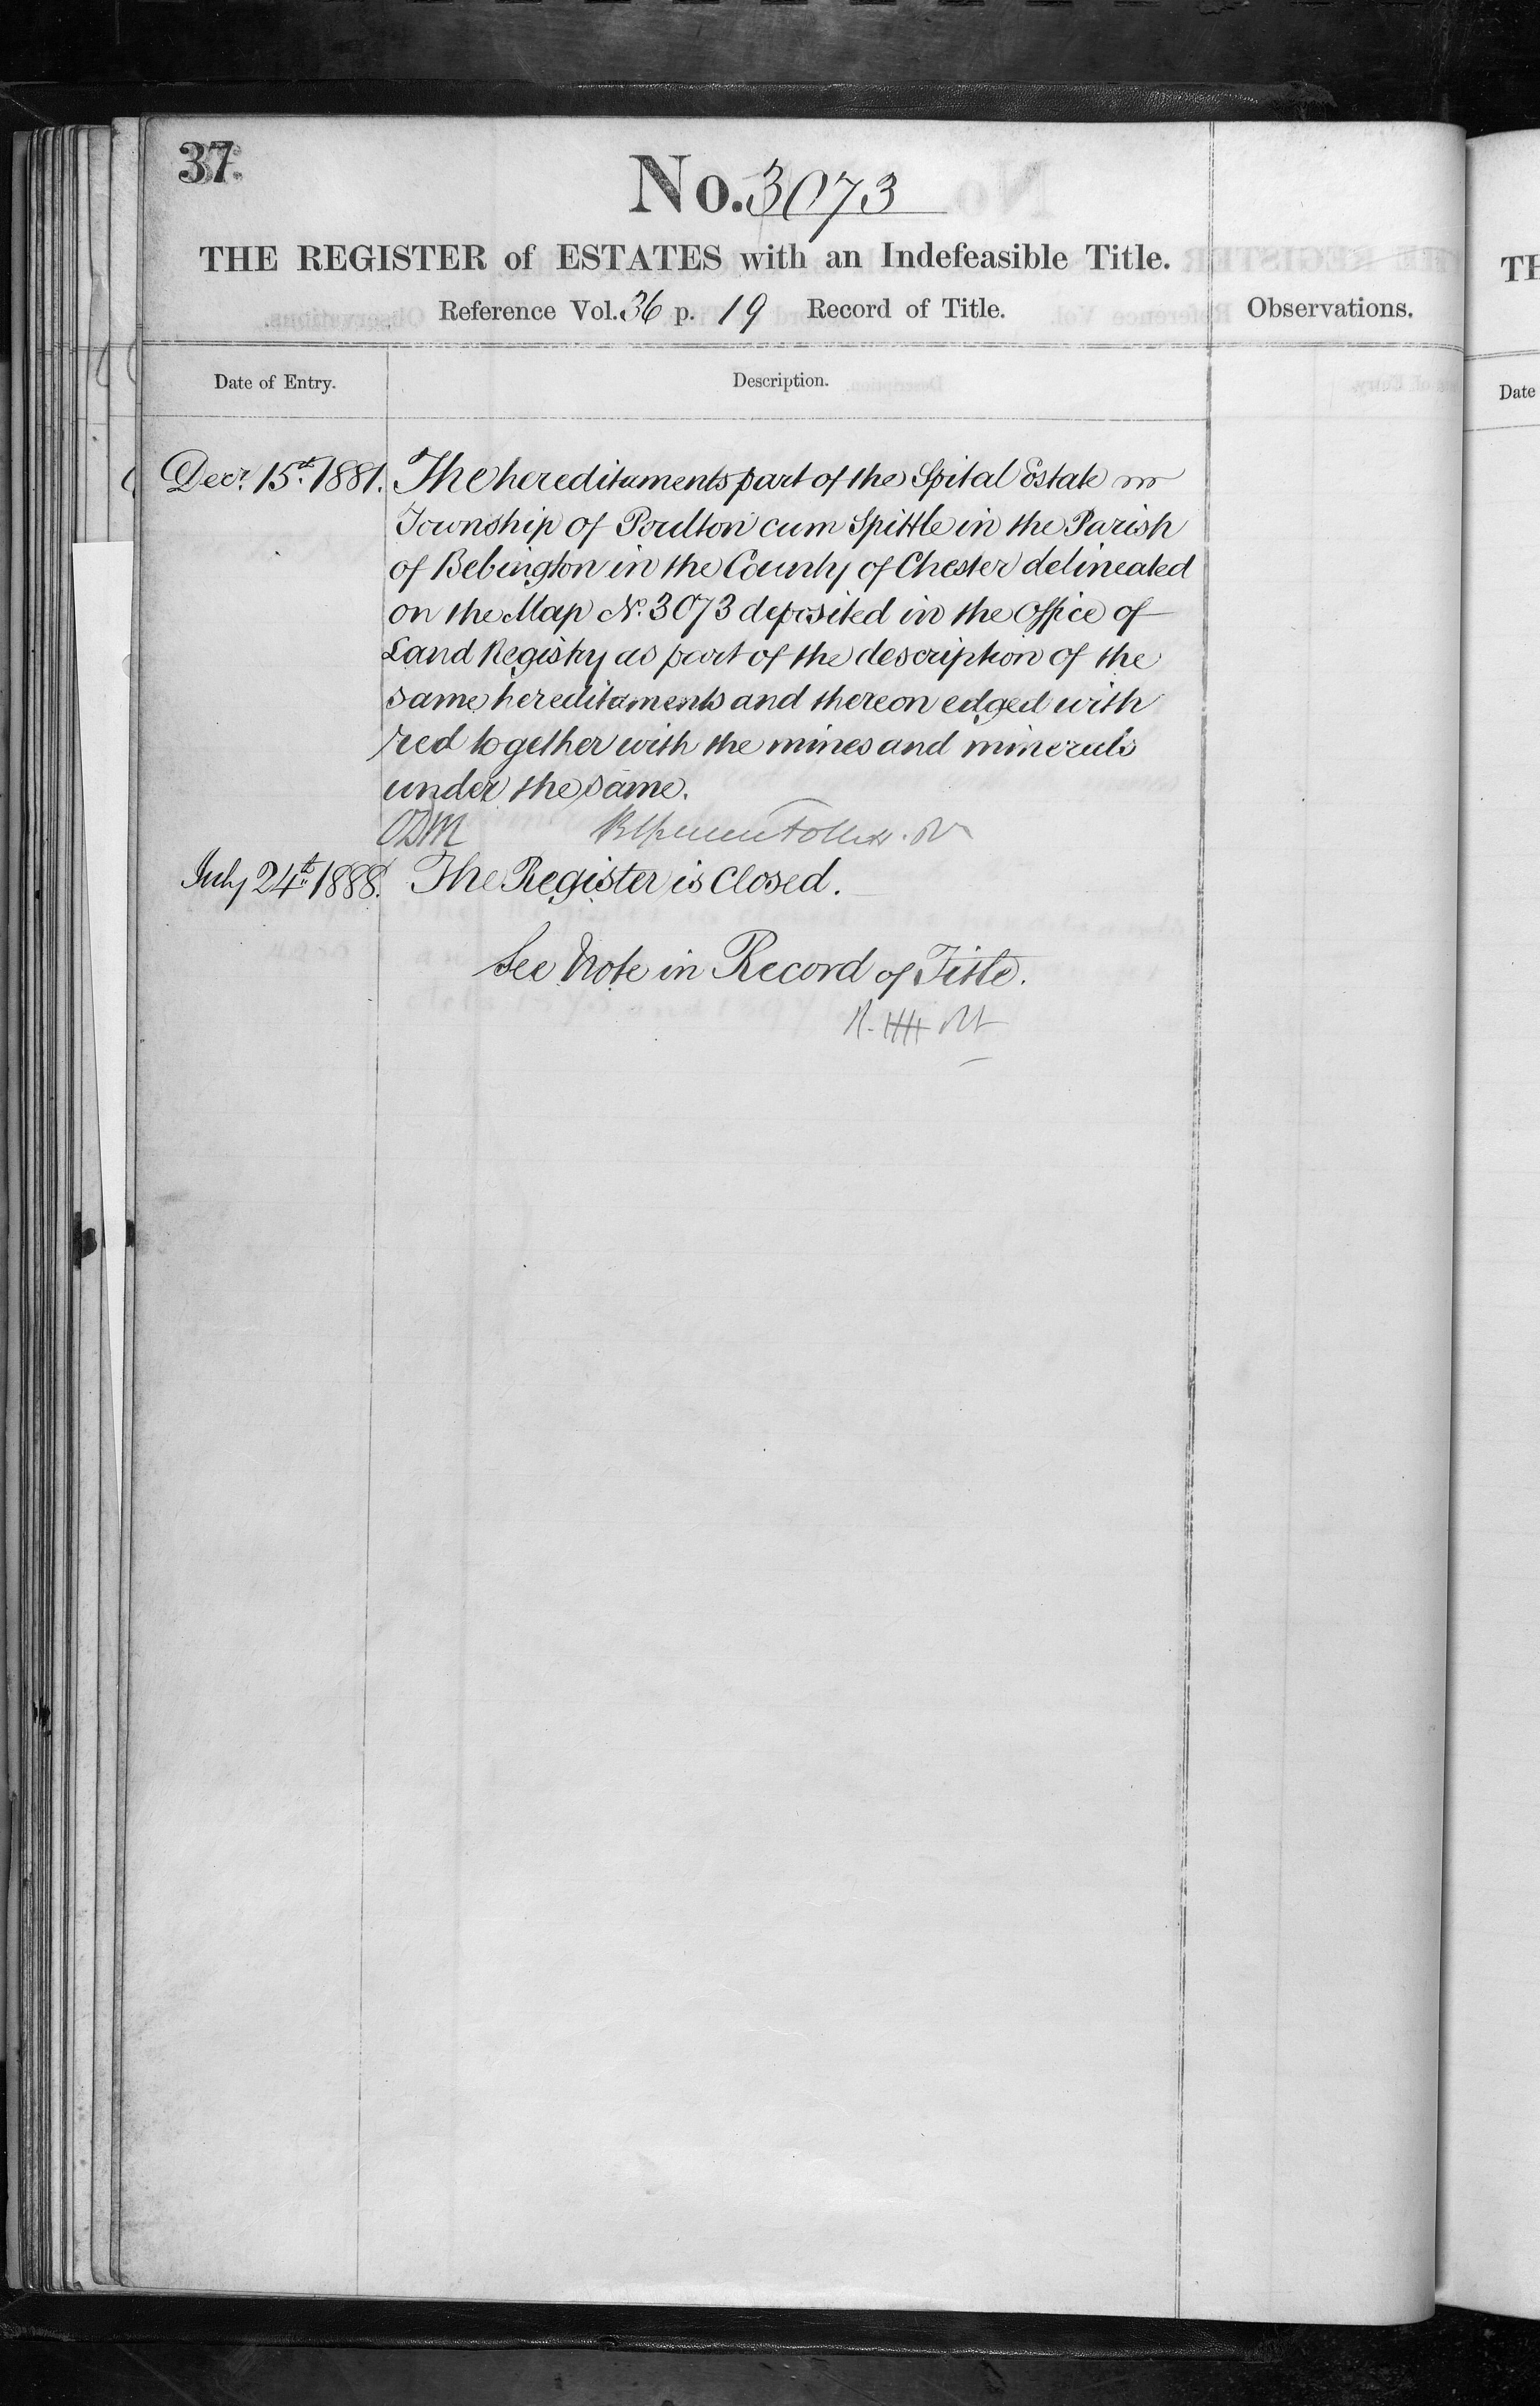 37.
No. 3073
THE REGISTER of ESTATES with an Indefeasible Title.
Reference Vol. 36 p. 19 Record of Title.
Observations.
Date of Entry.
Description.
Decr. 15th. 1881. The hereditaments part of the Spital Estate in
Township of Poulton cum Spittle in the Parish
of Bebington in the County of Chester delineated
on the Map No. 3073 deposited in the Office of
Land Registry as part of the description of the
same hereditaments and thereon edged with
red together with the mines and minerals
under the same.
July 24th. 1888. The Register is Closed.
See Note in Record of Title.
Date